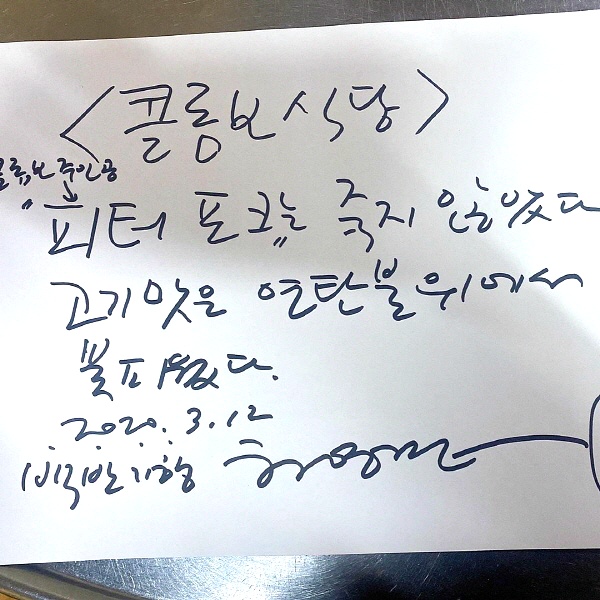 <콜롬보 식당>
콜롬보 주인공
↓
"피터 포크는" 죽지 않았다
고기맛은 연탄불 위에서
꽃피웠다.
2020. 3. 12
백반기행 허영만